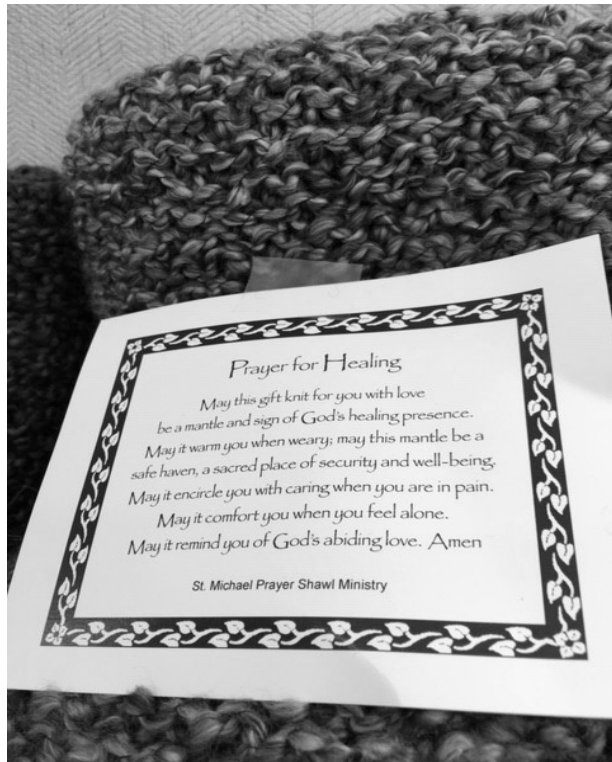 Prayer for Healing
May this gift knit for you with love
be a mantle and sign of God's healing presence.
May it warm you when weary; may this mantle be a
safe haven, a sacred place of security and well-being.
May it encircle you with caring when you are in pain.
May it comfort you when you feel alone.
May it remind you of God's abiding love. Amen
St. Michael Prayer Shawl Ministry